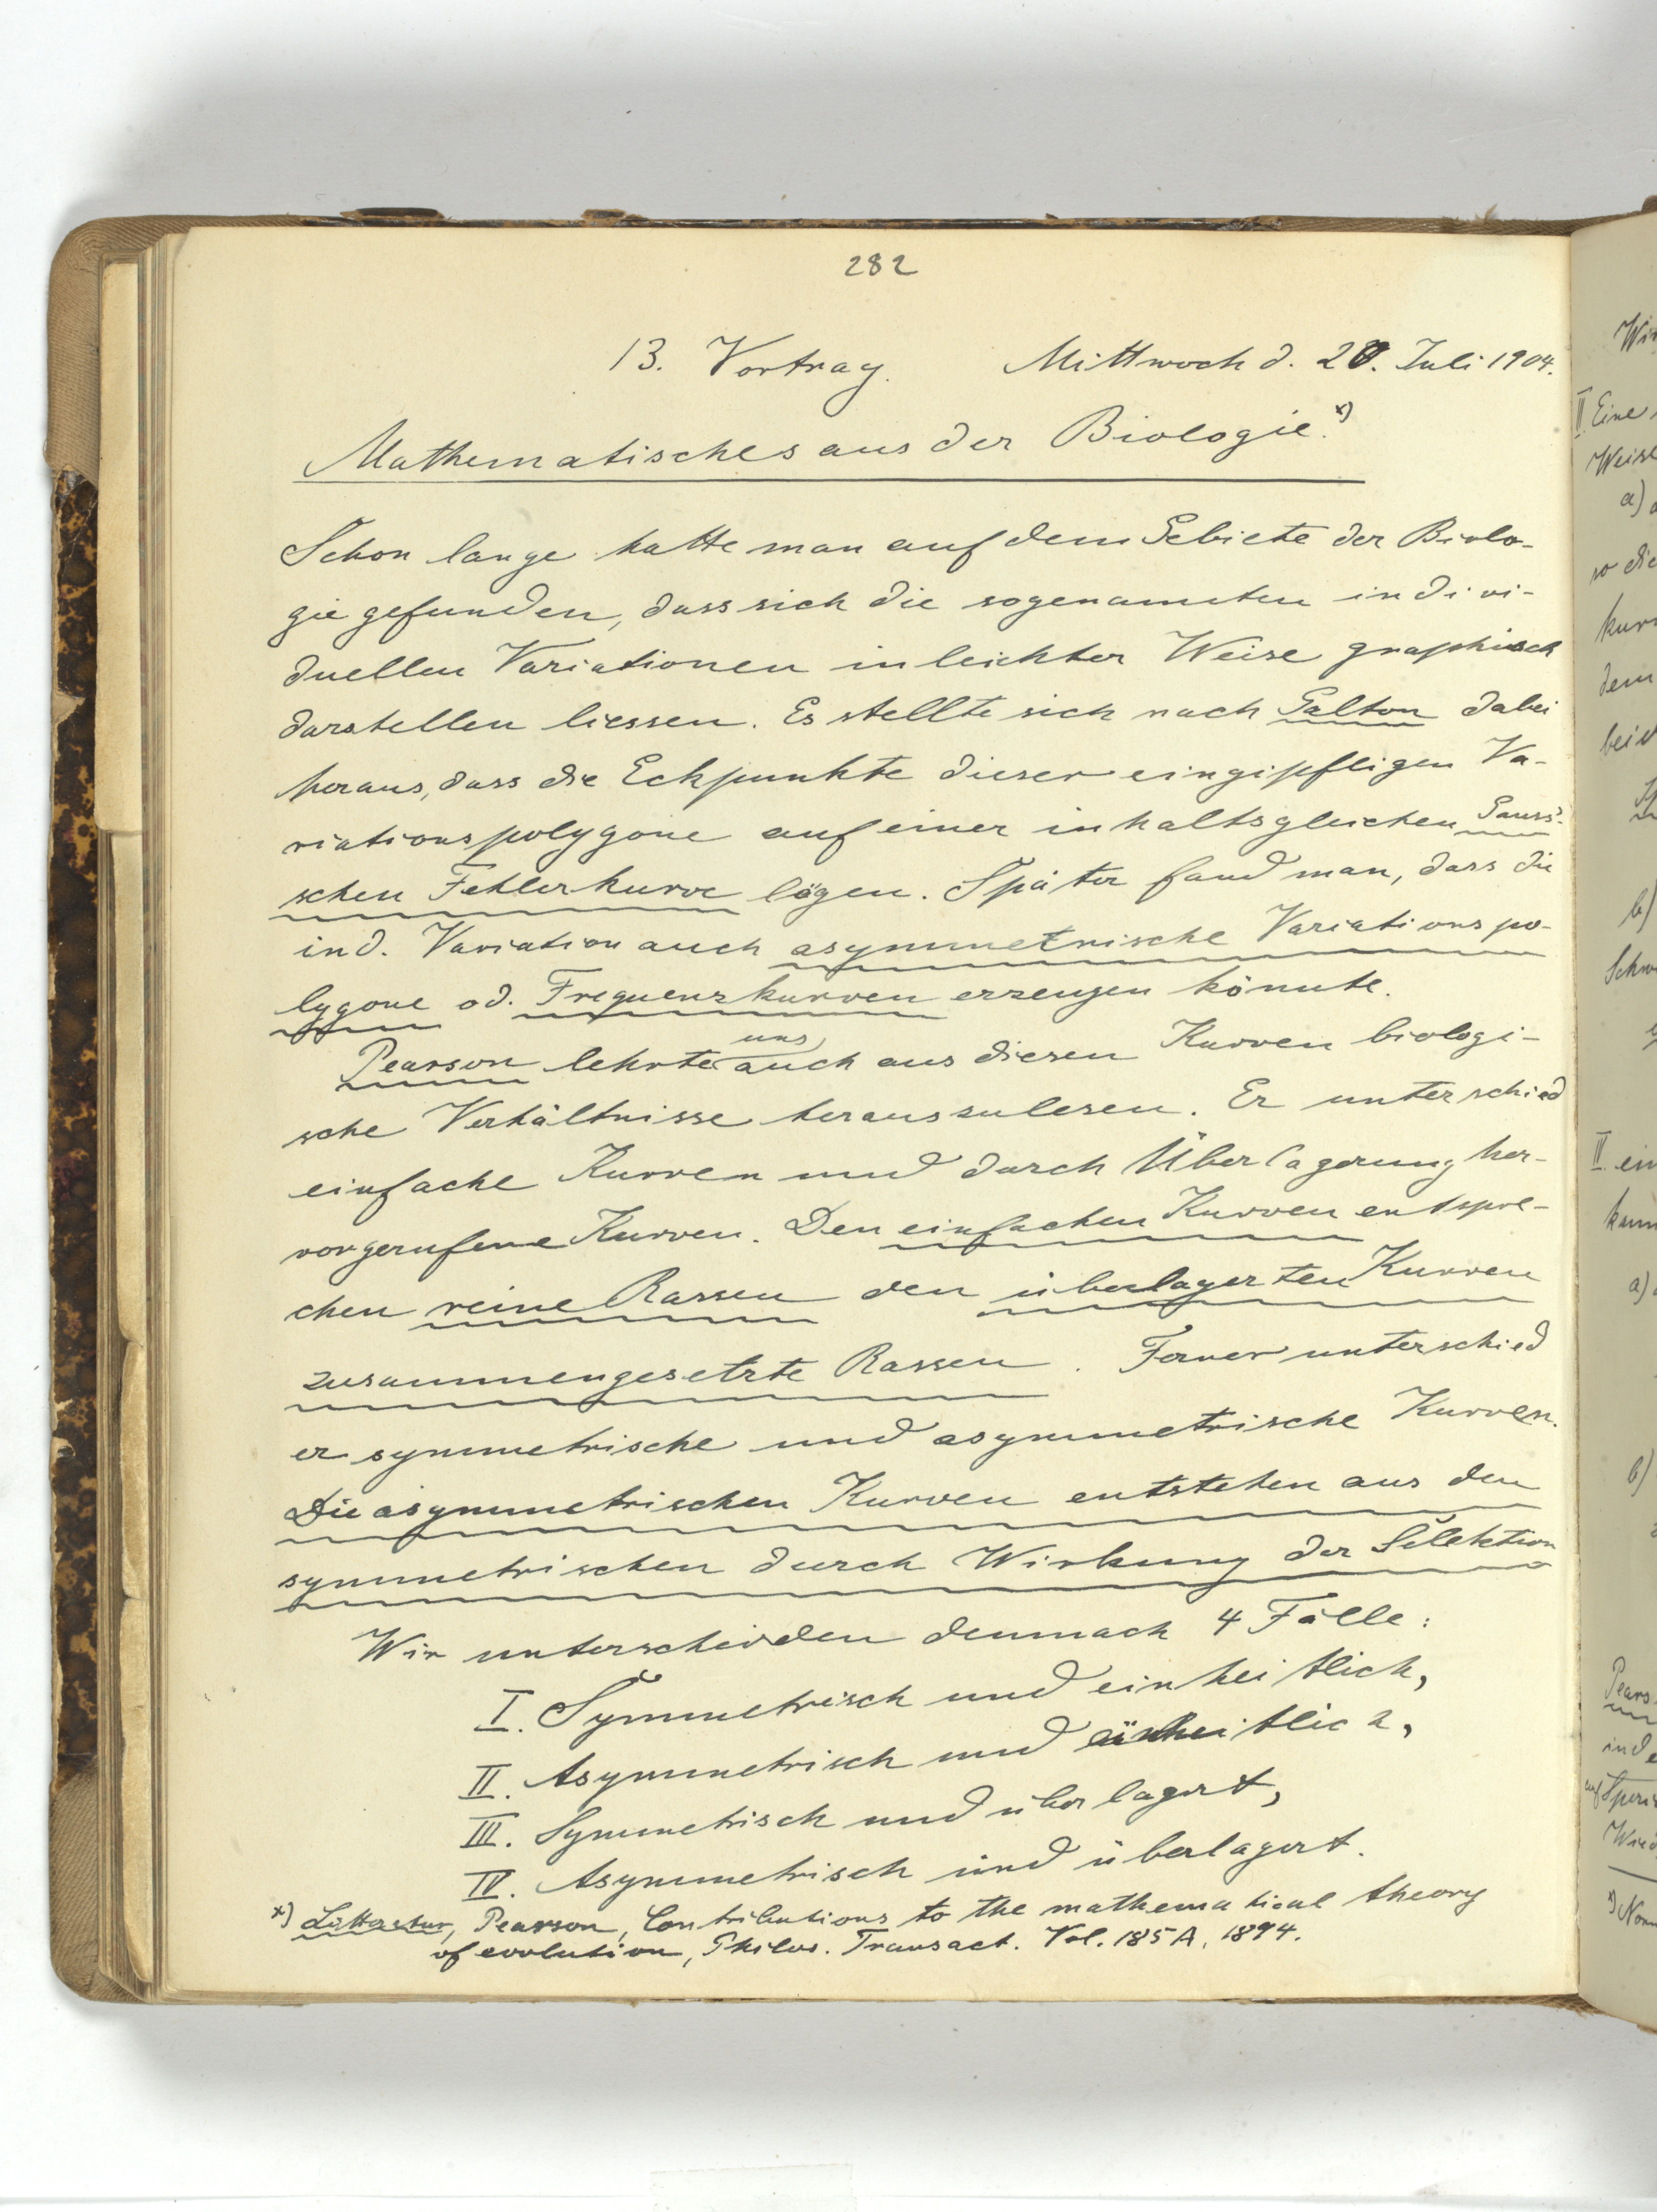 282
13. Vortrag. Mittwoch d. 20. Juli 1904.
Mathematisches aus der Biologie.x)
Schon lange hatte man auf dem Gebiete der Biolo-
gie gefunden, dass sich die sogenannten indivi-
duellen Variationen in leichter Weise graphisch
darstellen liessen. Es stellte sich nach Galton dabei
heraus, dass die Eckpunkte dieser eingipfligen Va-
riationspolygone auf einer inhaltsgleichen Gauss'-
schen Fehlerkurve lägen. Später fand man, dass die
ind. Variation auch asymmetrische Variationspo-
lygone od. Frequenzkurven erzeugen könnte.
uns
Pearson lehrte auch aus diesen Kurven biologi-
sche Verhältnisse herauszulesen. Er unterschied
einfache Kurven und durch Überlagerung her-
vorgerufene Kurven. Den einfachen Kurven entspre-
chen reine Rassen den überlagerten Kurven
zusammengesetzte Rassen. Ferner unterschied
er symmetrische und asymmetrische Kurven.
Die asymmetrischen Kurven entstehen aus den
symmetrischen durch Wirkung der Selektion
Wir unterscheiden demnach 4 Fälle:
I. Symmetrisch und einheitlich,
II. Asymmetrisch und einheitlich,
III. Symmetrisch und überlagert,
IV. Asymmetrisch und überlagert.
x) Litteratur, Pearson, Contributions to the mathematical theory
of evolution, Philos. Transact. Vol. 185 A, 1894.
II. Eine
Weise
a)
so die
kurv
dem
b)
IV. ein
a)
b)
Pears